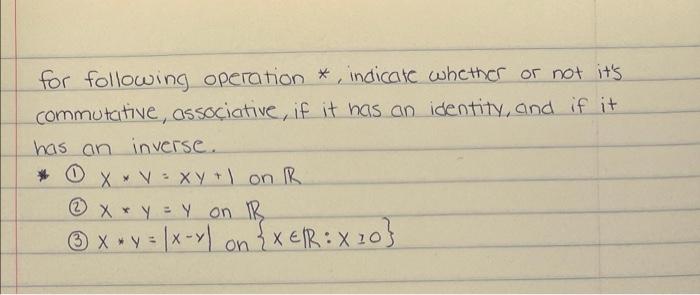 for following operation *, indicate whether or not it's
commutative, associative, if it has an identity, and if it
has an inverse.
* ① x * y = xy + 1 on ℝ
② x * y = y on ℝ
③ x * y = |x-y| on {x ∈ ℝ : x ≥ 0}